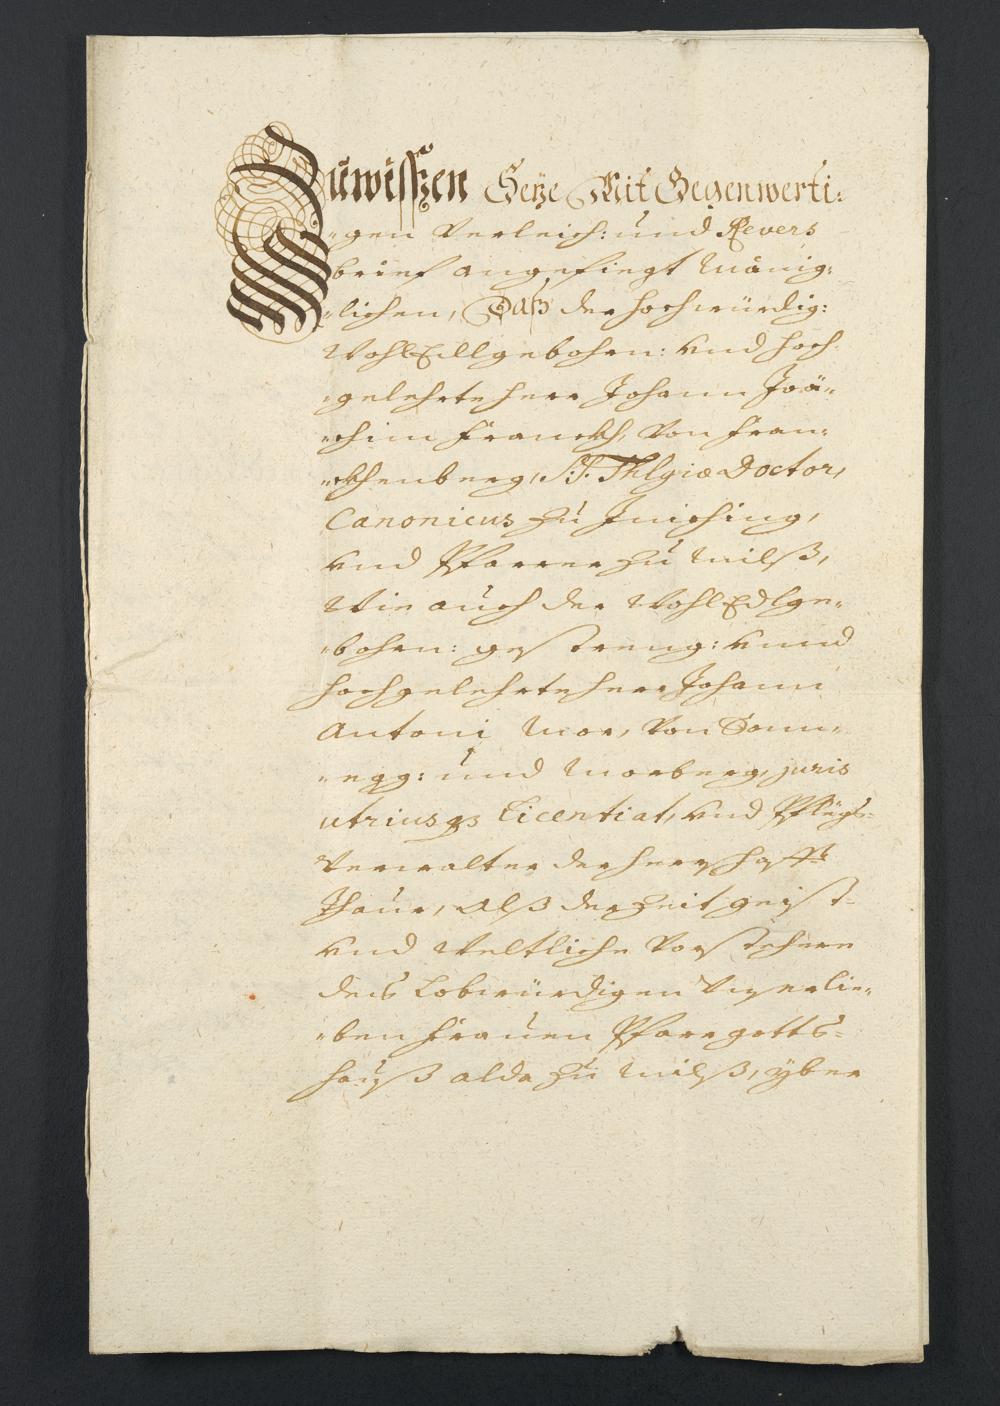 Zuwissen Seÿe Mit Gegenwerti:
gen Verleich: und Revers
brief angefiegt Mänig:
lichen, Daß der hochwürdig:
WohlEdlgebohrn: und hoch
gelehrte herr Johann Joä„
„chim Franckh, Von Fran„
„ckhenberg, S:S: Thlgiæ Doctor,
Canonicus zu Jniching,
und Pfarrer zu Milß,
Wie auch der WohlEdlge„
„bohrn: gestreng: unnd
hochgelehrte herr Johann
Antoni Mor, Von Sonn„
„egg: und Morberg, juris
utriusqs Licentiat, und Pflegs=
Verwalter der herrschafft
Thaur, Alß der Zeit geist=
und Weltliche Vorstehere
deß Lobwürdigen Vnser lie„
„ben Frauen Pfarrgotts=
hauß alda zu Milß, yber